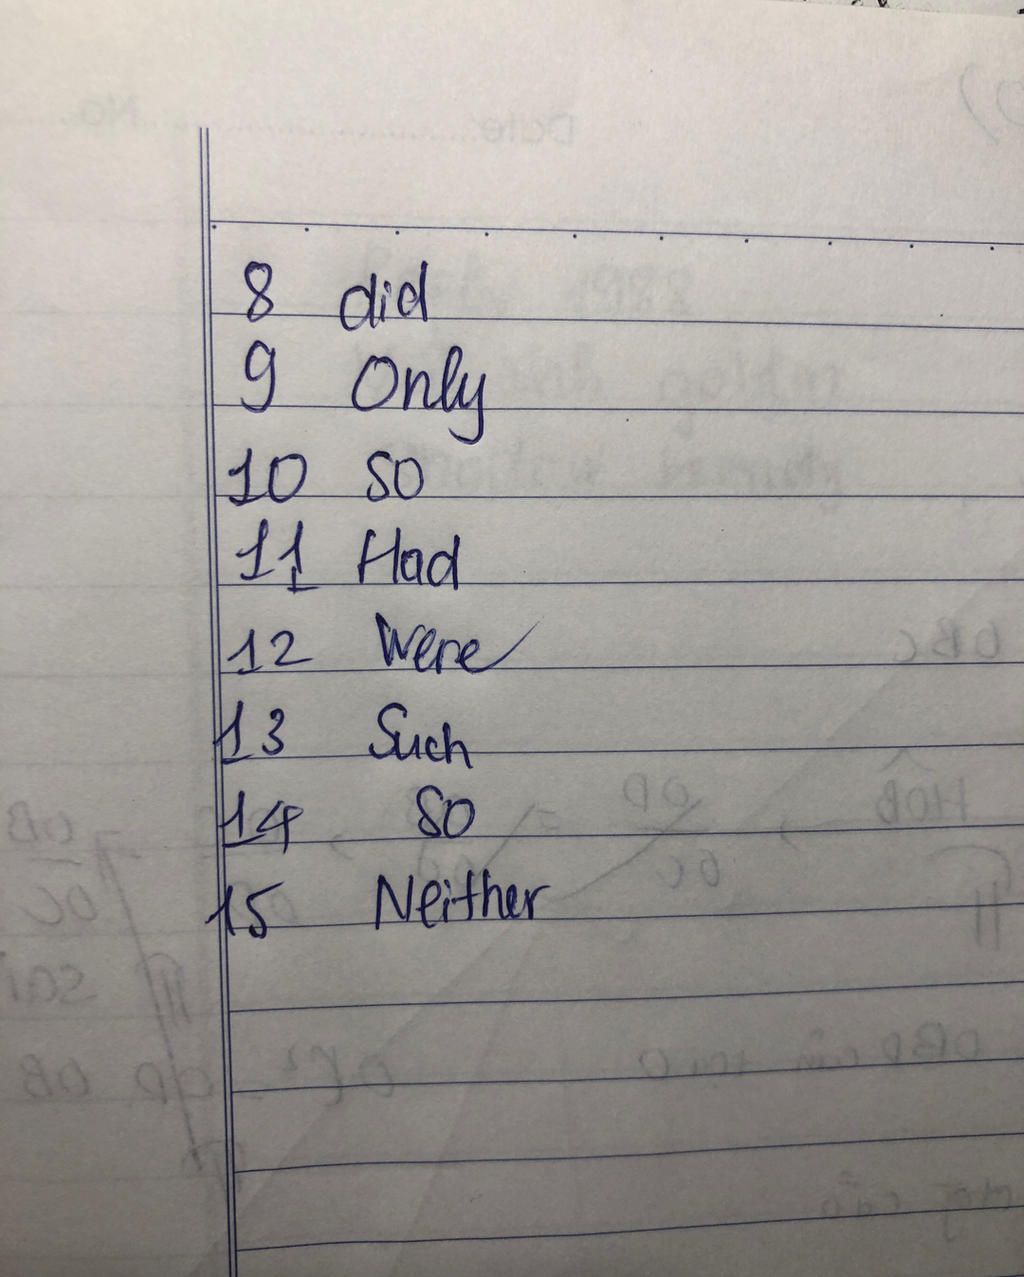 8 did
9 Only
10 SO
11 Had
12 Were
13 Such
14 SO
15 Neither